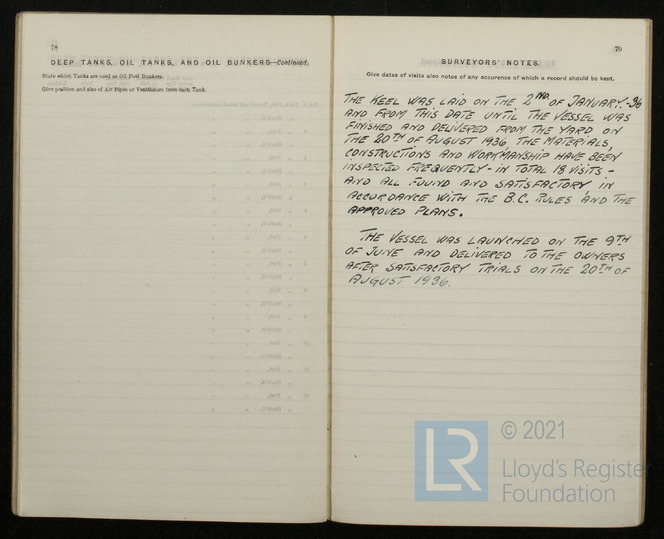 78
DEEP TANKS, OIL TANKS, AND OIL BUNKERS—Continued.
State which Tanks are used as Oil Fuel Bunkers.
Give position and size of Air Pipes or Ventilators from each Tank.
79
SURVEYORS' NOTES.
Give dates of visits also notes of any occurence of which a record should be kept.
THE KEEL WAS LAID ON THE 2ND. OF JANUARY -36
AND FROM THIS DATE UNTIL THE VESSEL WAS
FINISHED AND DELIVERED FROM THE YARD ON
THE 20TH OF AUGUST 1936, THE MATERIALS,
CONSTRUCTIONS AND WORKMANSHIP HAVE BEEN
INSPECTED FREQUENTLY - IN TOTAL 18 VISITS -
AND ALL FOUND AND SATISFACTORY IN
ACCORDANCE WITH THE B.C. RULES AND THE
APPROVED PLANS.
THE VESSEL WAS LAUNCHED ON THE 9TH
OF JUNE AND DELIVERED TO THE OWNERS
AFTER SATISFACTORY TRIALS ON THE 20TH OF
AUGUST 1936.
LR
© 2021
Lloyd's Register
Foundation